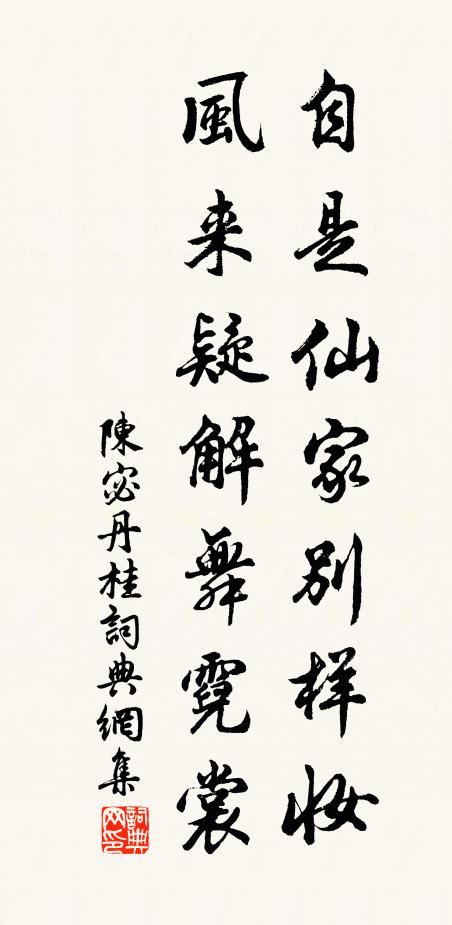 自是仙家別样妝
風来疑解舞霓裳
陳宓丹桂詞典網集
詞典网印